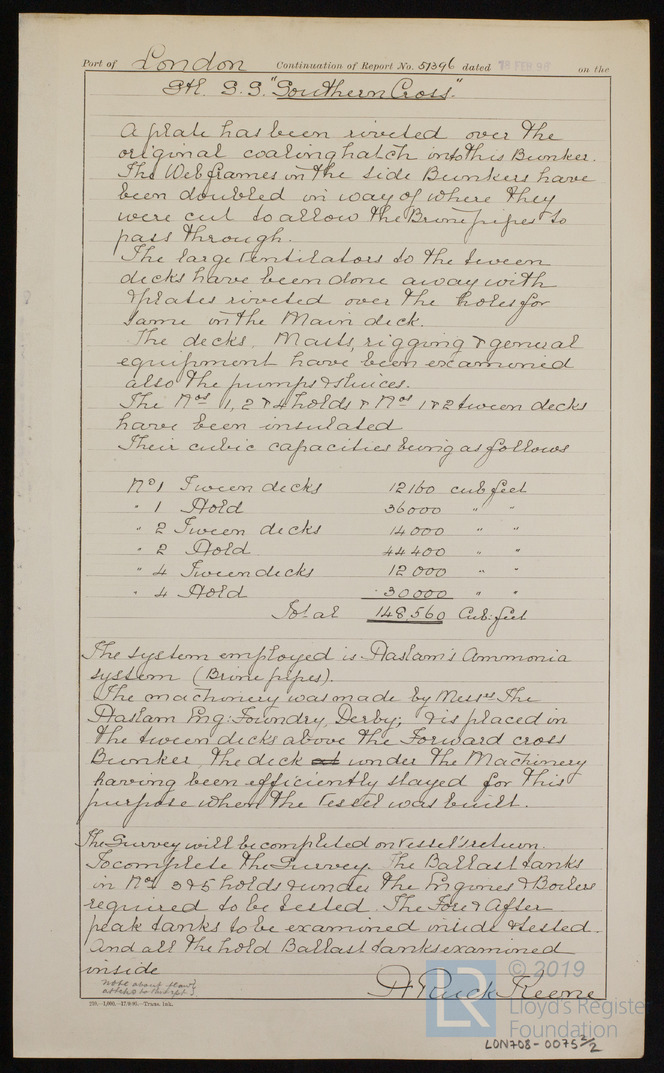 Port of London Continuation of Report No. 51396 dated 18 FEB 98 on the
Stl. S.S. "Southern Cross".
A plate has been riveted over the
original coaling hatch into this Bunker.
The Web frames in the side Bunkers have
been doubled in way of where they
were cut to allow the Brine pipes to
pass through.
The large Ventilators to the tween
decks have been done away with
& plates riveted over the holes for
same in the Main deck.
The decks, Masts, rigging & general
equipment have been examined
also the pumps & sluices.
The Nos 1, 2 & 4 holds & Nos 1 & 2 tween decks
have been insulated
Their cubic capacities being as follows
No 1 Tween decks 12160 cub feet
" 1 Hold 36000 " "
" 2 Tween decks 14000 " "
" 2 Hold 44400 " "
" 4 Tween decks 12000 " "
" 4 Hold 30000 " "
Total 148,560 Cub: feet
The system employed is Haslam's Ammonia
system (Brine pipes).
The machinery was made by Messrs The
Haslam Eng: Foundry, Derby; & is placed in
the tween decks above the Forward cross
Bunker, the deck under the Machinery
having been efficiently stayed for this
purpose when the Vessel was built.
The Survey will be completed on Vessel's return.
To complete the Survey. The Ballast tanks
in Nos 3 & 5 holds & under the Engines & Boilers
required to be tested. The Fore & After
peak tanks to be examined inside & tested.
And all the hold Ballast tanks examined
inside
Note about plan
attached to this rpt
A Ruck Keene
210.—1,000.—17/9/95.—Trans. Ink.
© 2019
LR
Lloyd's Register
Foundation
LON708-0075 2/2